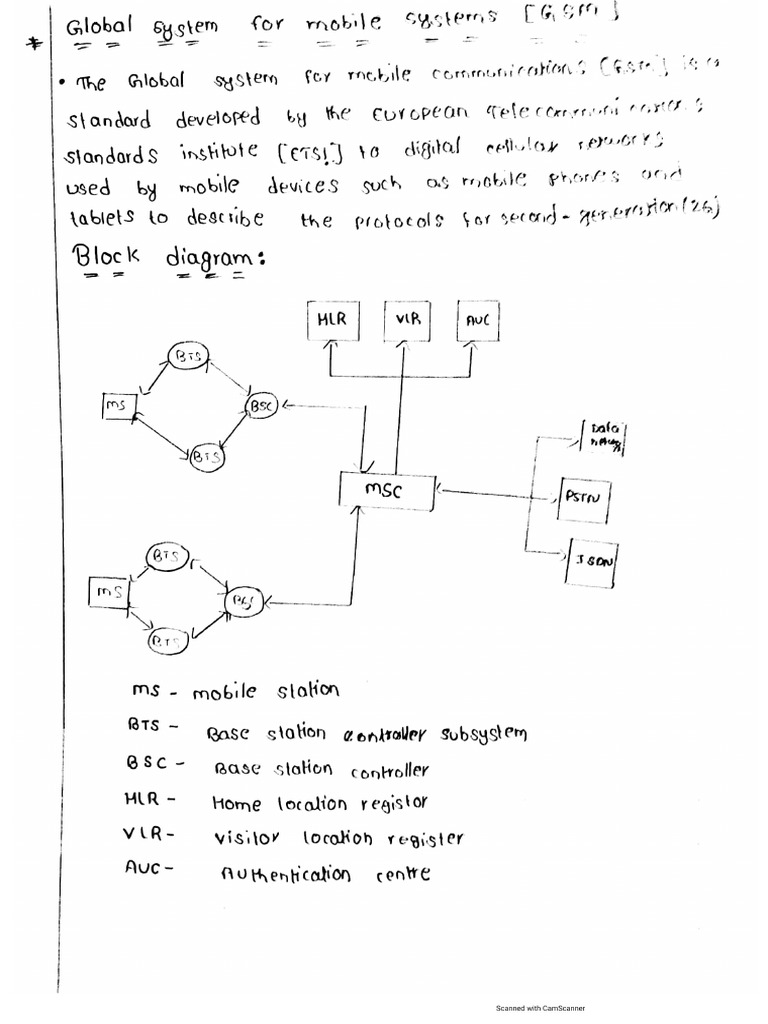 Global system for mobile systems [GSM]
* 
• The Global system for mobile communications [GSM] is a
standard developed by the European Telecommunications
standards institute [ETSI] to digital cellular networks
used by mobile devices such as mobile phones and
tablets to describe the protocols for second-generation(2G)
Block diagram:
HLR VLR AUC
BTS
MS BSC
BTS
Data
MSC
PSTN
ISDN
BTS
MS
BTS
MS - mobile station
BTS - Base station controller subsystem
BSC - Base station controller
HLR - Home location registor
VLR - Visitor location register
AUC - Authentication centre
Scanned with CamScanner